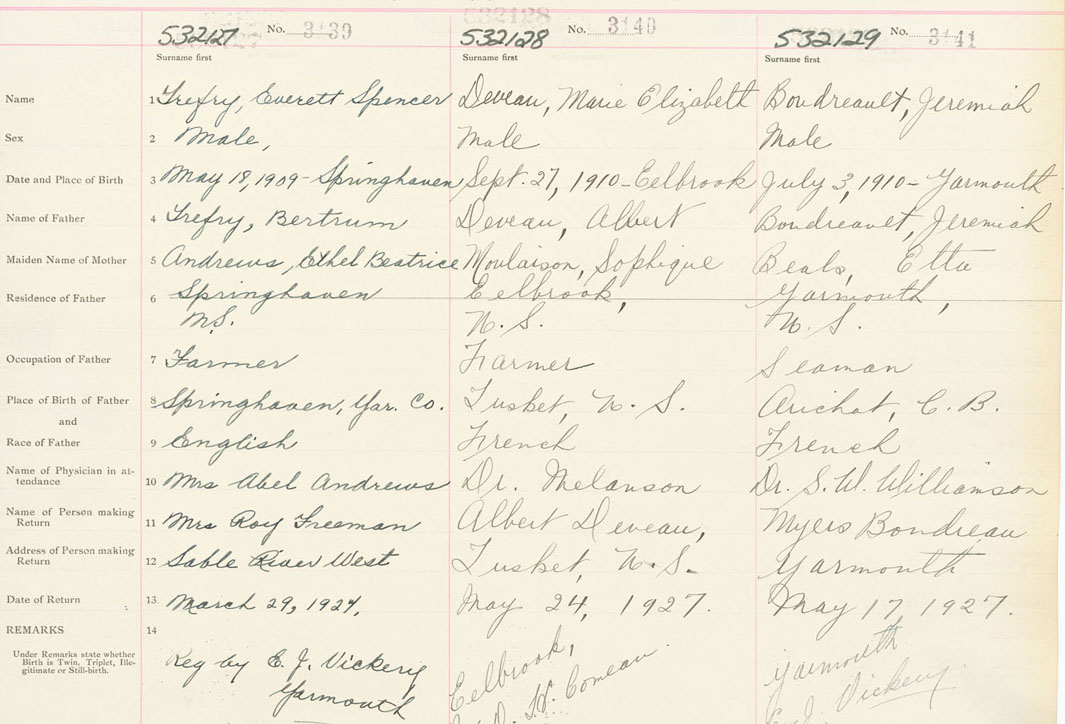 532127 No. 3139 532128 No. 3140 532129 No. 3141
Surname first Surname first Surname first
Name 1 Trefry, Everett Spencer Deveau, Marie Elizabeth Boudreault, Jeremiah
Sex 2 Male, Male Male
Date and Place of Birth 3 May 18, 1909 - Springhaven Sept. 27, 1910 - Eelbrook July 3, 1910 - Yarmouth
Name of Father 4 Trefry, Bertrum Deveau, Albert Boudreault, Jeremiah
Maiden Name of Mother 5 Andrews, Ethel Beatrice Moulaison, Sophique Beals, Etta
Residence of Father 6 Springhaven Eelbrook, Yarmouth,
N.S. N. S. N. S.
Occupation of Father 7 Farmer Farmer Seaman
Place of Birth of Father 8 Springhaven, Yar. Co. Tusket, N. S. Arichat, C. B.
and
Race of Father 9 English French French
Name of Physician in at-
tendance 10 Mrs Abel Andrews Dr. Melanson Dr. S. W. Williamson
Name of Person making
Return 11 Mrs Roy Freeman Albert Deveau, Myers Boudreau
Address of Person making
Return 12 Sable River West Tusket, N. S. Yarmouth
Date of Return 13 March 29, 1927. May 24, 1927. May 17, 1927.
REMARKS 14
Under Remarks state whether
Birth is Twin, Triplet, Ille-
gitimate or Still-birth.
Reg by E. J. Vickery Eelbrook, Yarmouth
Yarmouth W. Comeau Vickery